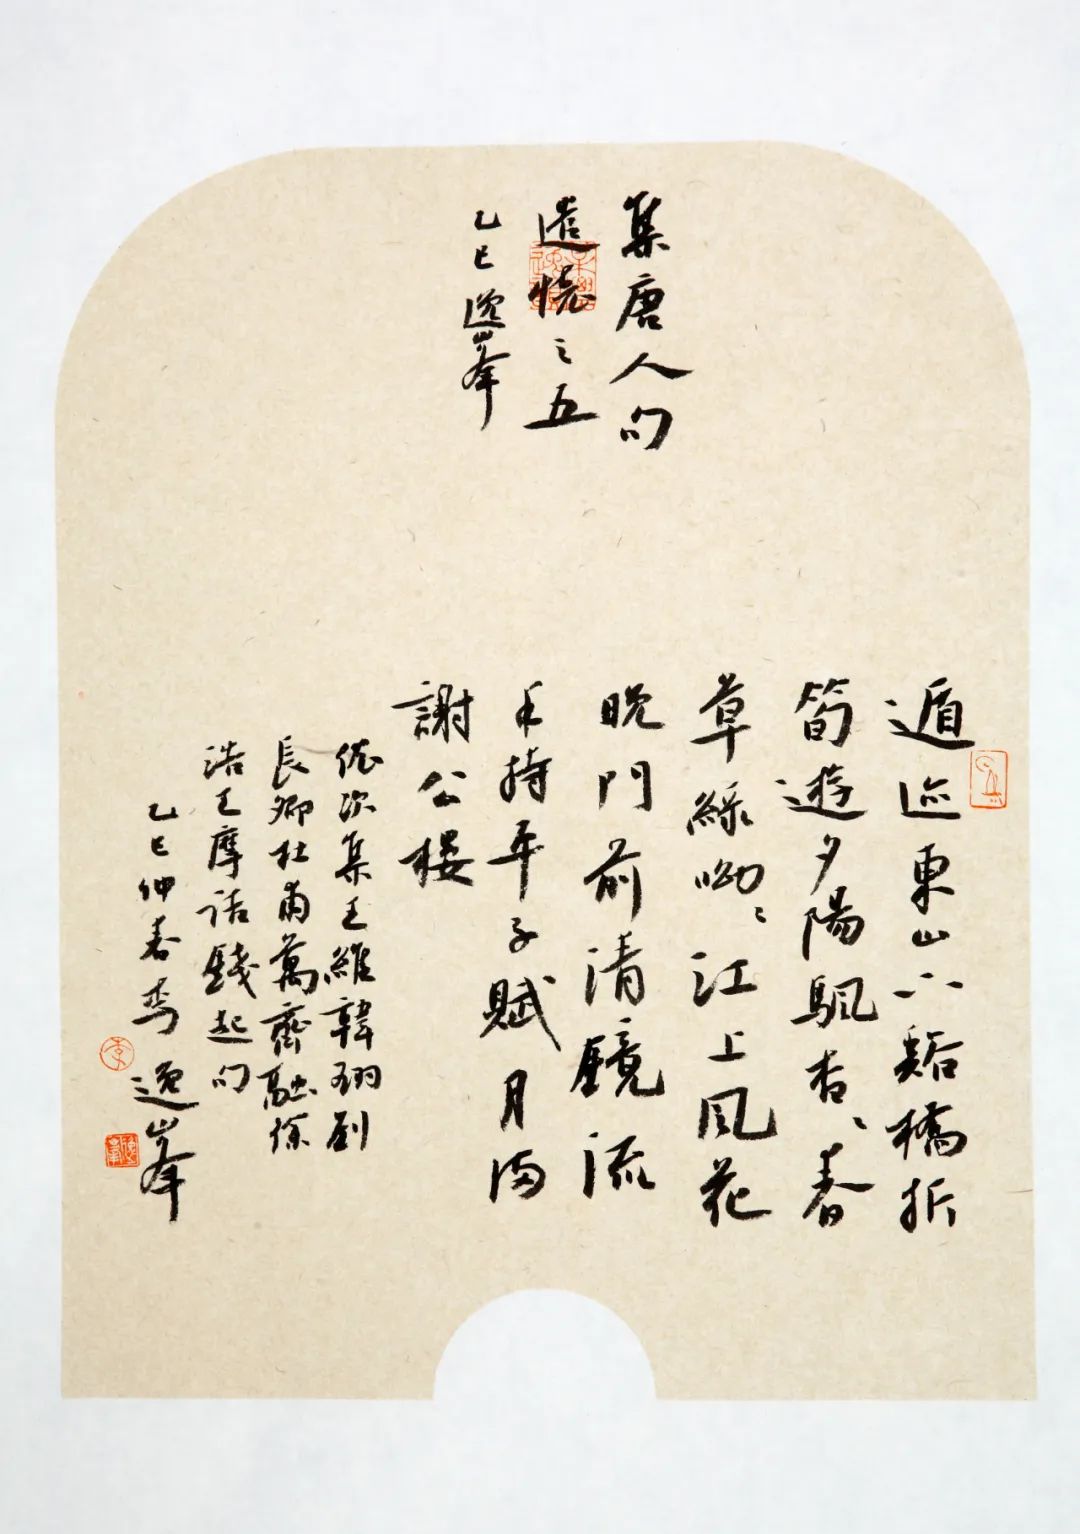 集唐人句
遣懷之五
乙巳逸峯
遁迹東山下谿橋折
筍遊夕陽颿杳〻春
草綠呦〻江上風花
晚門前清鏡流
手持平子賦月滿
謝公樓
依次集王維韓翃劉
長卿杜甫萬齊融徐
浩王摩詰錢起句
乙巳仲春李逸峯
李
逸峯